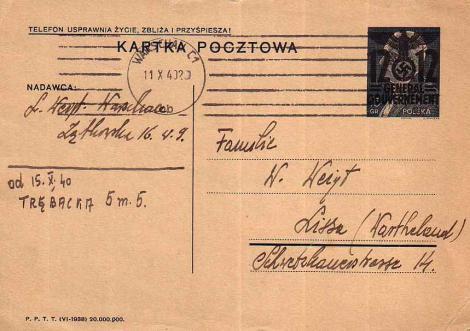 TELEFON USPRAWNIA ŻYCIE, ZBLIŻA I PRZYŚPIESZA!
KARTKA POCZTOWA
WARSZAWA C1
11 X 40
ob
12 12
GENERAL
GOUVERNEMENT
GR POLSKA
NADAWCA:
L. Weigt Warschau
16. 4. 9.
od 15. X. 40
TRĘBACKA 5 m. 5.
Familie
W. Weigt
Lissa (Wartheland)
14.
P. P. T. T. (VI-1938) 20.000.000.